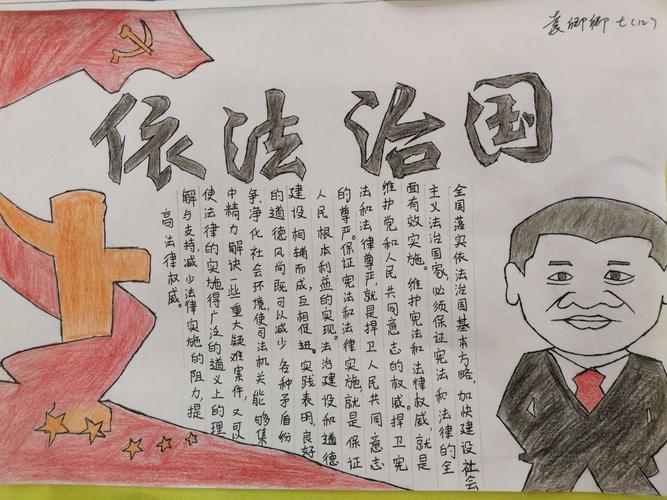 袁卿卿 七(12)
依法治国
全国落实依法治国基本方略,加快建设社会
主义法治国家,必须保证宪法和法律的全
面有效实施。维护宪法和法律权威,就是
维护党和人民共同意志的权威。捍卫宪
法和法律尊严,就是捍卫人民共同意志
的尊严。保证宪法和法律实施,就是保证
人民根本利益的实现。法治建设和道德
建设相辅而成,互相促进。实践表明,良好
的道德风尚既可以减少各种矛盾纷
争,净化社会环境,使司法机关能够集
中精力解决一些重大疑难案件,又可
使法律的实施得广泛的道义上的理
解与支持,减少法律实施的阻力,提
高法律权威。